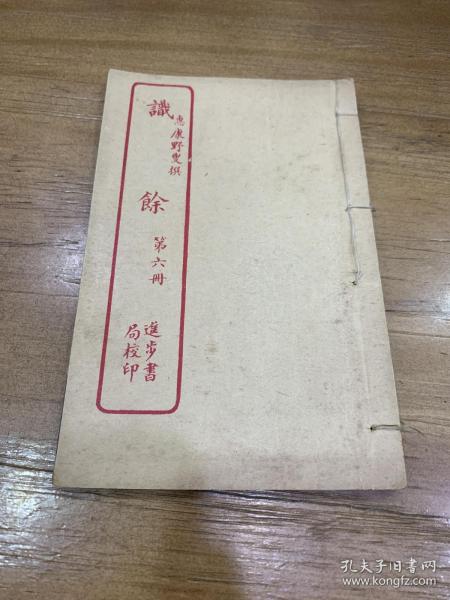 識餘
惠康野叟撰
第六冊
進步書
局校印
孔夫子旧书网
www.kongfz.com